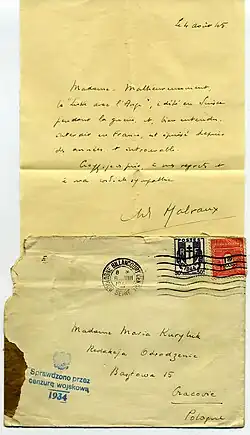 Le 4 août 45
Madame. Malheureusement,
"la Lutte avec l'Ange", édité en Suisse
pendant la guerre et, bien entendu,
interdit en France, est épuisé depuis
des années et introuvable.
Croyez, je vous prie, à mes regrets et
à ma cordiale sympathie
André Malraux
BOULOGNE BILLANCOURT
SEINE
Madame Maria Kurylluk
Redakcja Odrodzenie
Basztowa 15
Cracovie
Pologne
Sprawdzono przez
cenzurę wojskową
1934